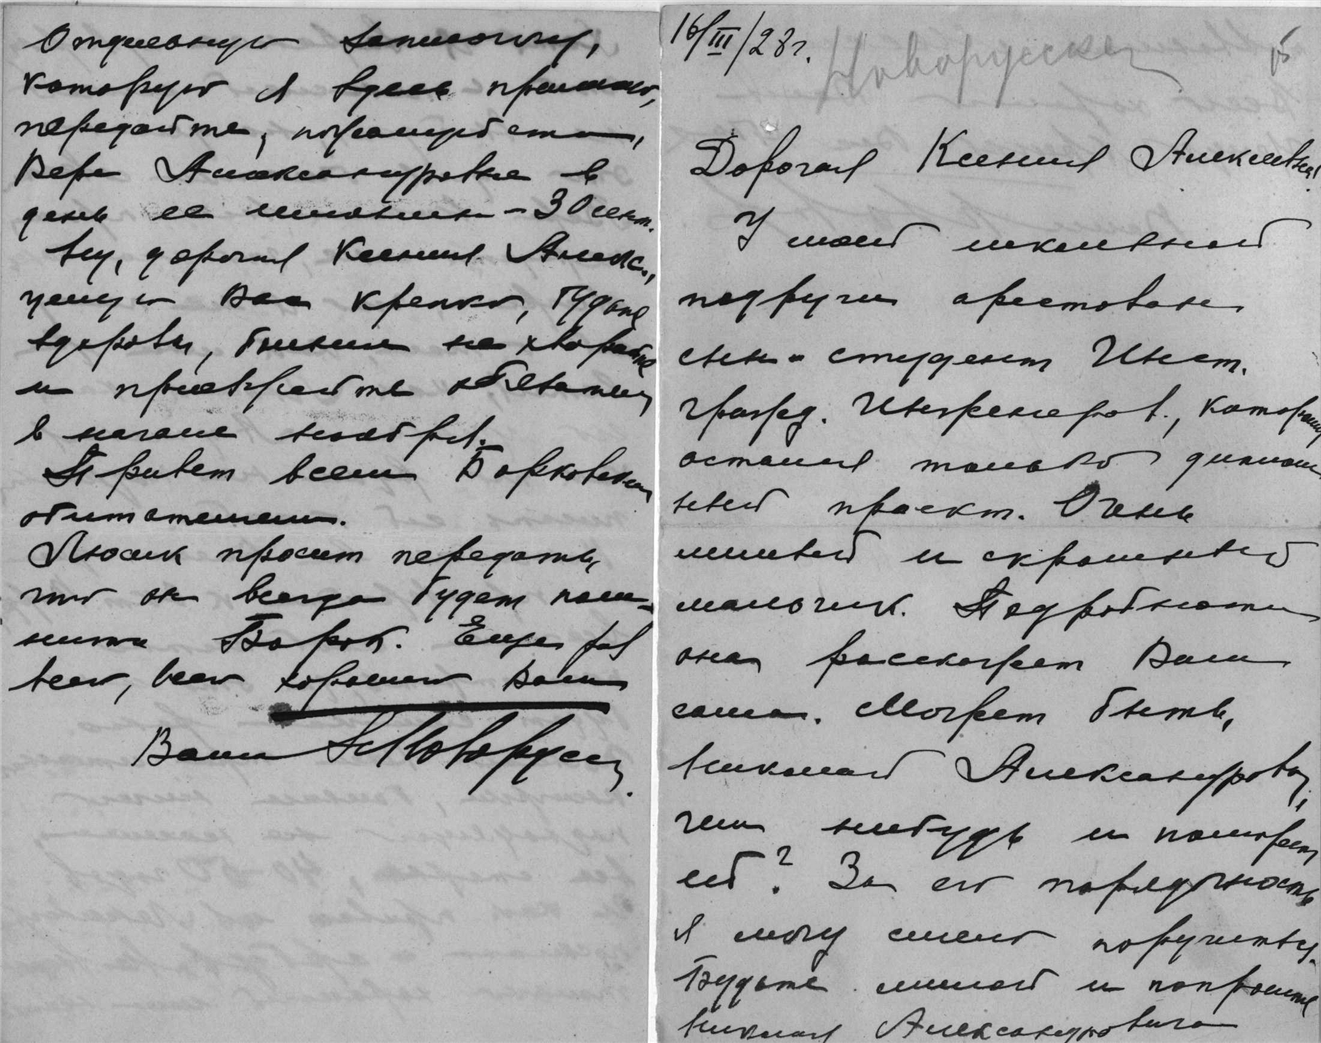 Отдельную записочку,
которую я здесь прилагаю,
передайте, пожалуйста,
Вере Александровне в
день ее именин – 30 сент.
Ну, дорогая Ксения Алекс.,
целую Вас крепко, будьте
здоровы, больше не хворайте
и приезжайте обязательно
в начале ноября.
Привет всем Борковским
обитателям.
Люсик просит передать,
что он всегда будет пом-
нить Борок. Еще раз
всего, всего хорошего Вам
Ваша Новорусск
16/III/28 г. Новорусская
Дорогая Ксения Алексеевна!
У моей школьной
подруги арестован
сын - студент Инст.
Гражд. Инженеров, которому
остался только диплом
ный проект. Очень
милый и скромный
мальчик. Подробности
она расскажет Вам
сама. Может быть,
Николай Александрович,
чем нибудь и поможет
ей? За его порядочность
я могу смело поручиться.
Будьте милой и попросите
Николая Александровича